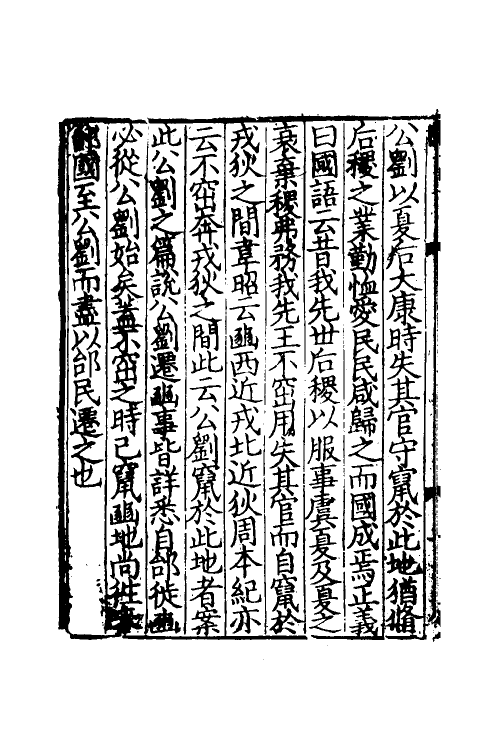 公劉以夏后大康時失其官守竄於此地猶脩
后稷之業勤恤愛民民咸歸之而國成焉正義
曰國語云昔我先世后稷以服事虞夏及夏之
衰棄稷弗務我先王不窋用失其官而自竄於
戎狄之間韋昭云豳西近戎北近狄周本紀亦
云不窋奔戎狄之間此云公劉竄於此地者案
此公劉之篇說公劉遷豳事皆詳悉自邰徙豳
必從公劉始矣蓋不窋之時已竄豳地尚往來
邰國至公劉而盡以邰民遷之也